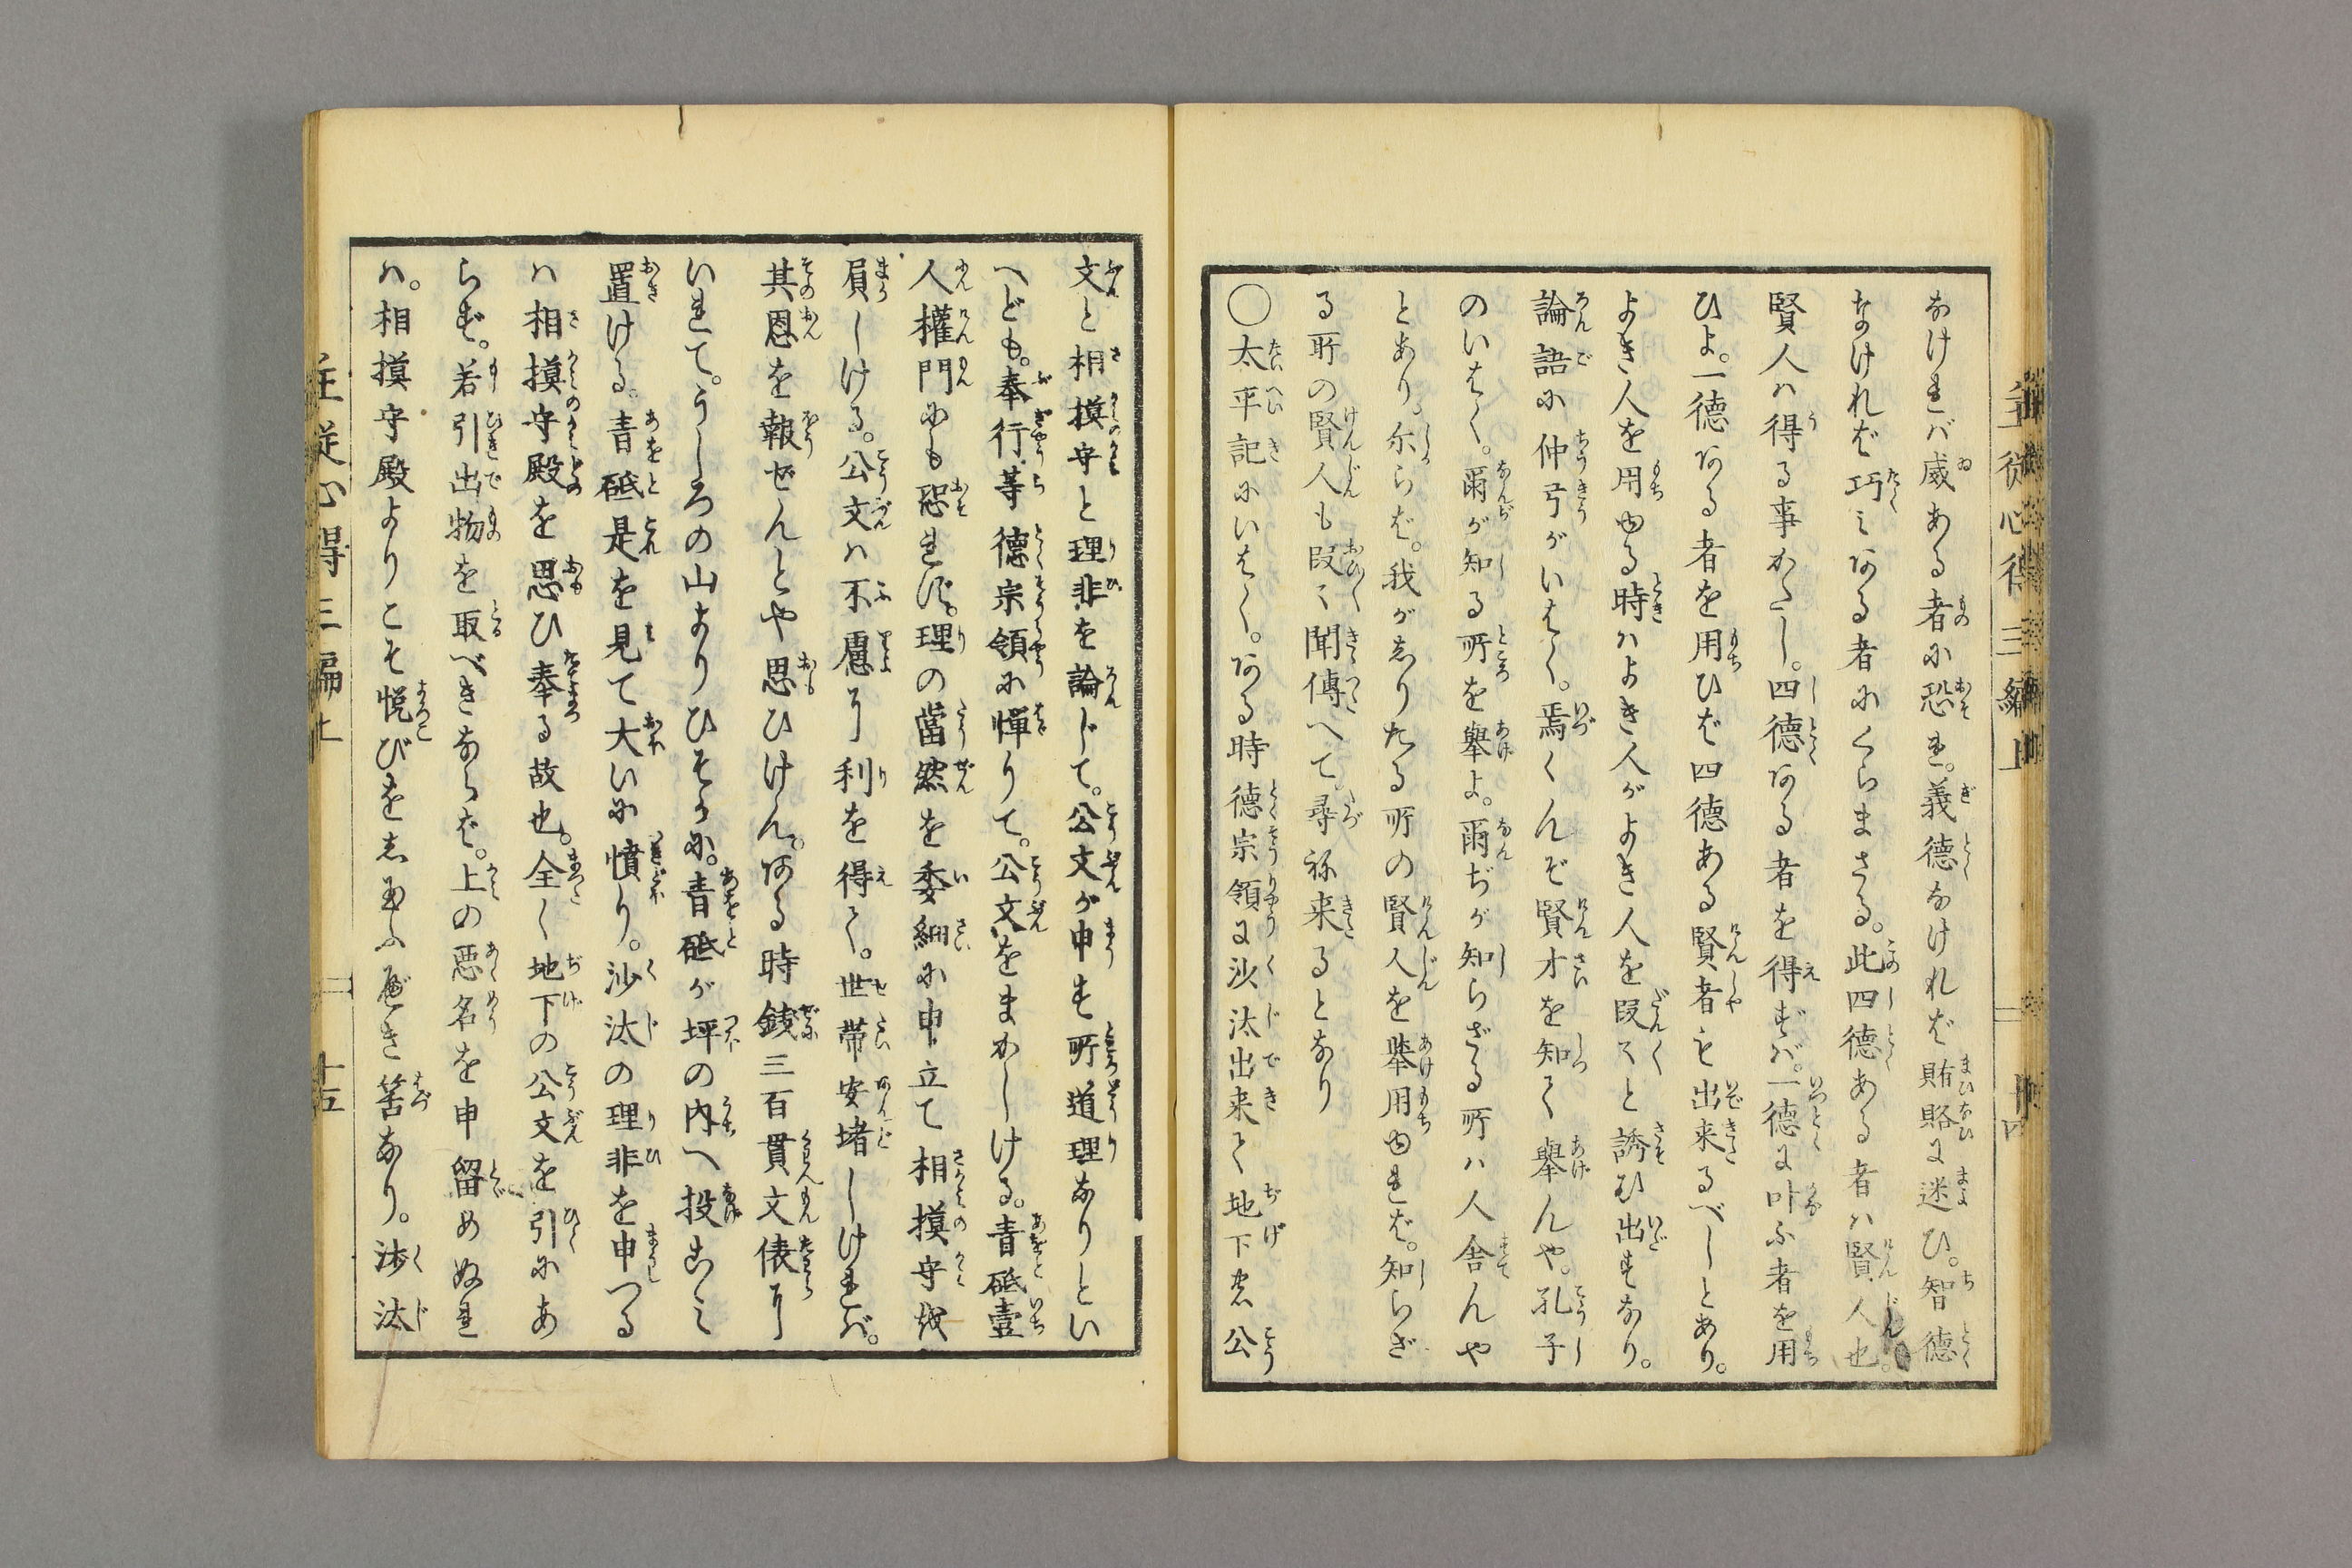 なければ威ある者に恐れ。義徳なければ賄賂に迷ひ。智徳
なければ巧ミある者にくらまさる。此四徳ある者ハ賢人也。
賢人ハ得る事かたし。四徳ある者を得ずバ。一徳に叶ふ者を用
ひよ。一徳ある者を用ひば四徳ある賢者も出来るべしとあり。
よき人を用ゆる時ハよき人がよき人を段々と誘ひ出すなり。
論語に仲弓がいはく。焉くんぞ賢才を知て舉んや。孔子
のいはく。爾が知る所を舉よ。爾ぢが知らざる所ハ人舎んや
とあり。尓らば。我がしりたる所の賢人を舉用ゆれば。知らざ
る所の賢人も段々聞傳へて。尋ね来るとなり
○太平記にいはく。ある時徳宗領に沙汰出来て地下の公
文と相摸守と理非を論じて。公文が申す所道理ありとい
へども。奉行等徳宗領に憚りて。公文をまかしける。青砥壹
人權門にも恐れず。理の當然を委細に申立て相摸守を
屓しける。公文ハ不慮に利を得て。世帯安堵しければ。
其恩を報ぜんとや思ひけん。ある時銭三百貫文俵に
いれて。うしろの山よりひそかに。青砥が坪の内へ投こミ
置ける。青砥是を見て大いに憤り。沙汰の理非を申つる
ハ相摸守殿を思ひ奉る故也。全く地下の公文を引にあ
らず。若引出物を取べきならば。上の悪名を申留めぬれ
ハ。相摸守殿よりこそ悦びをしたふべき筈なり。沙汰
主従心得三編上 十四
主従心得三編上 十五